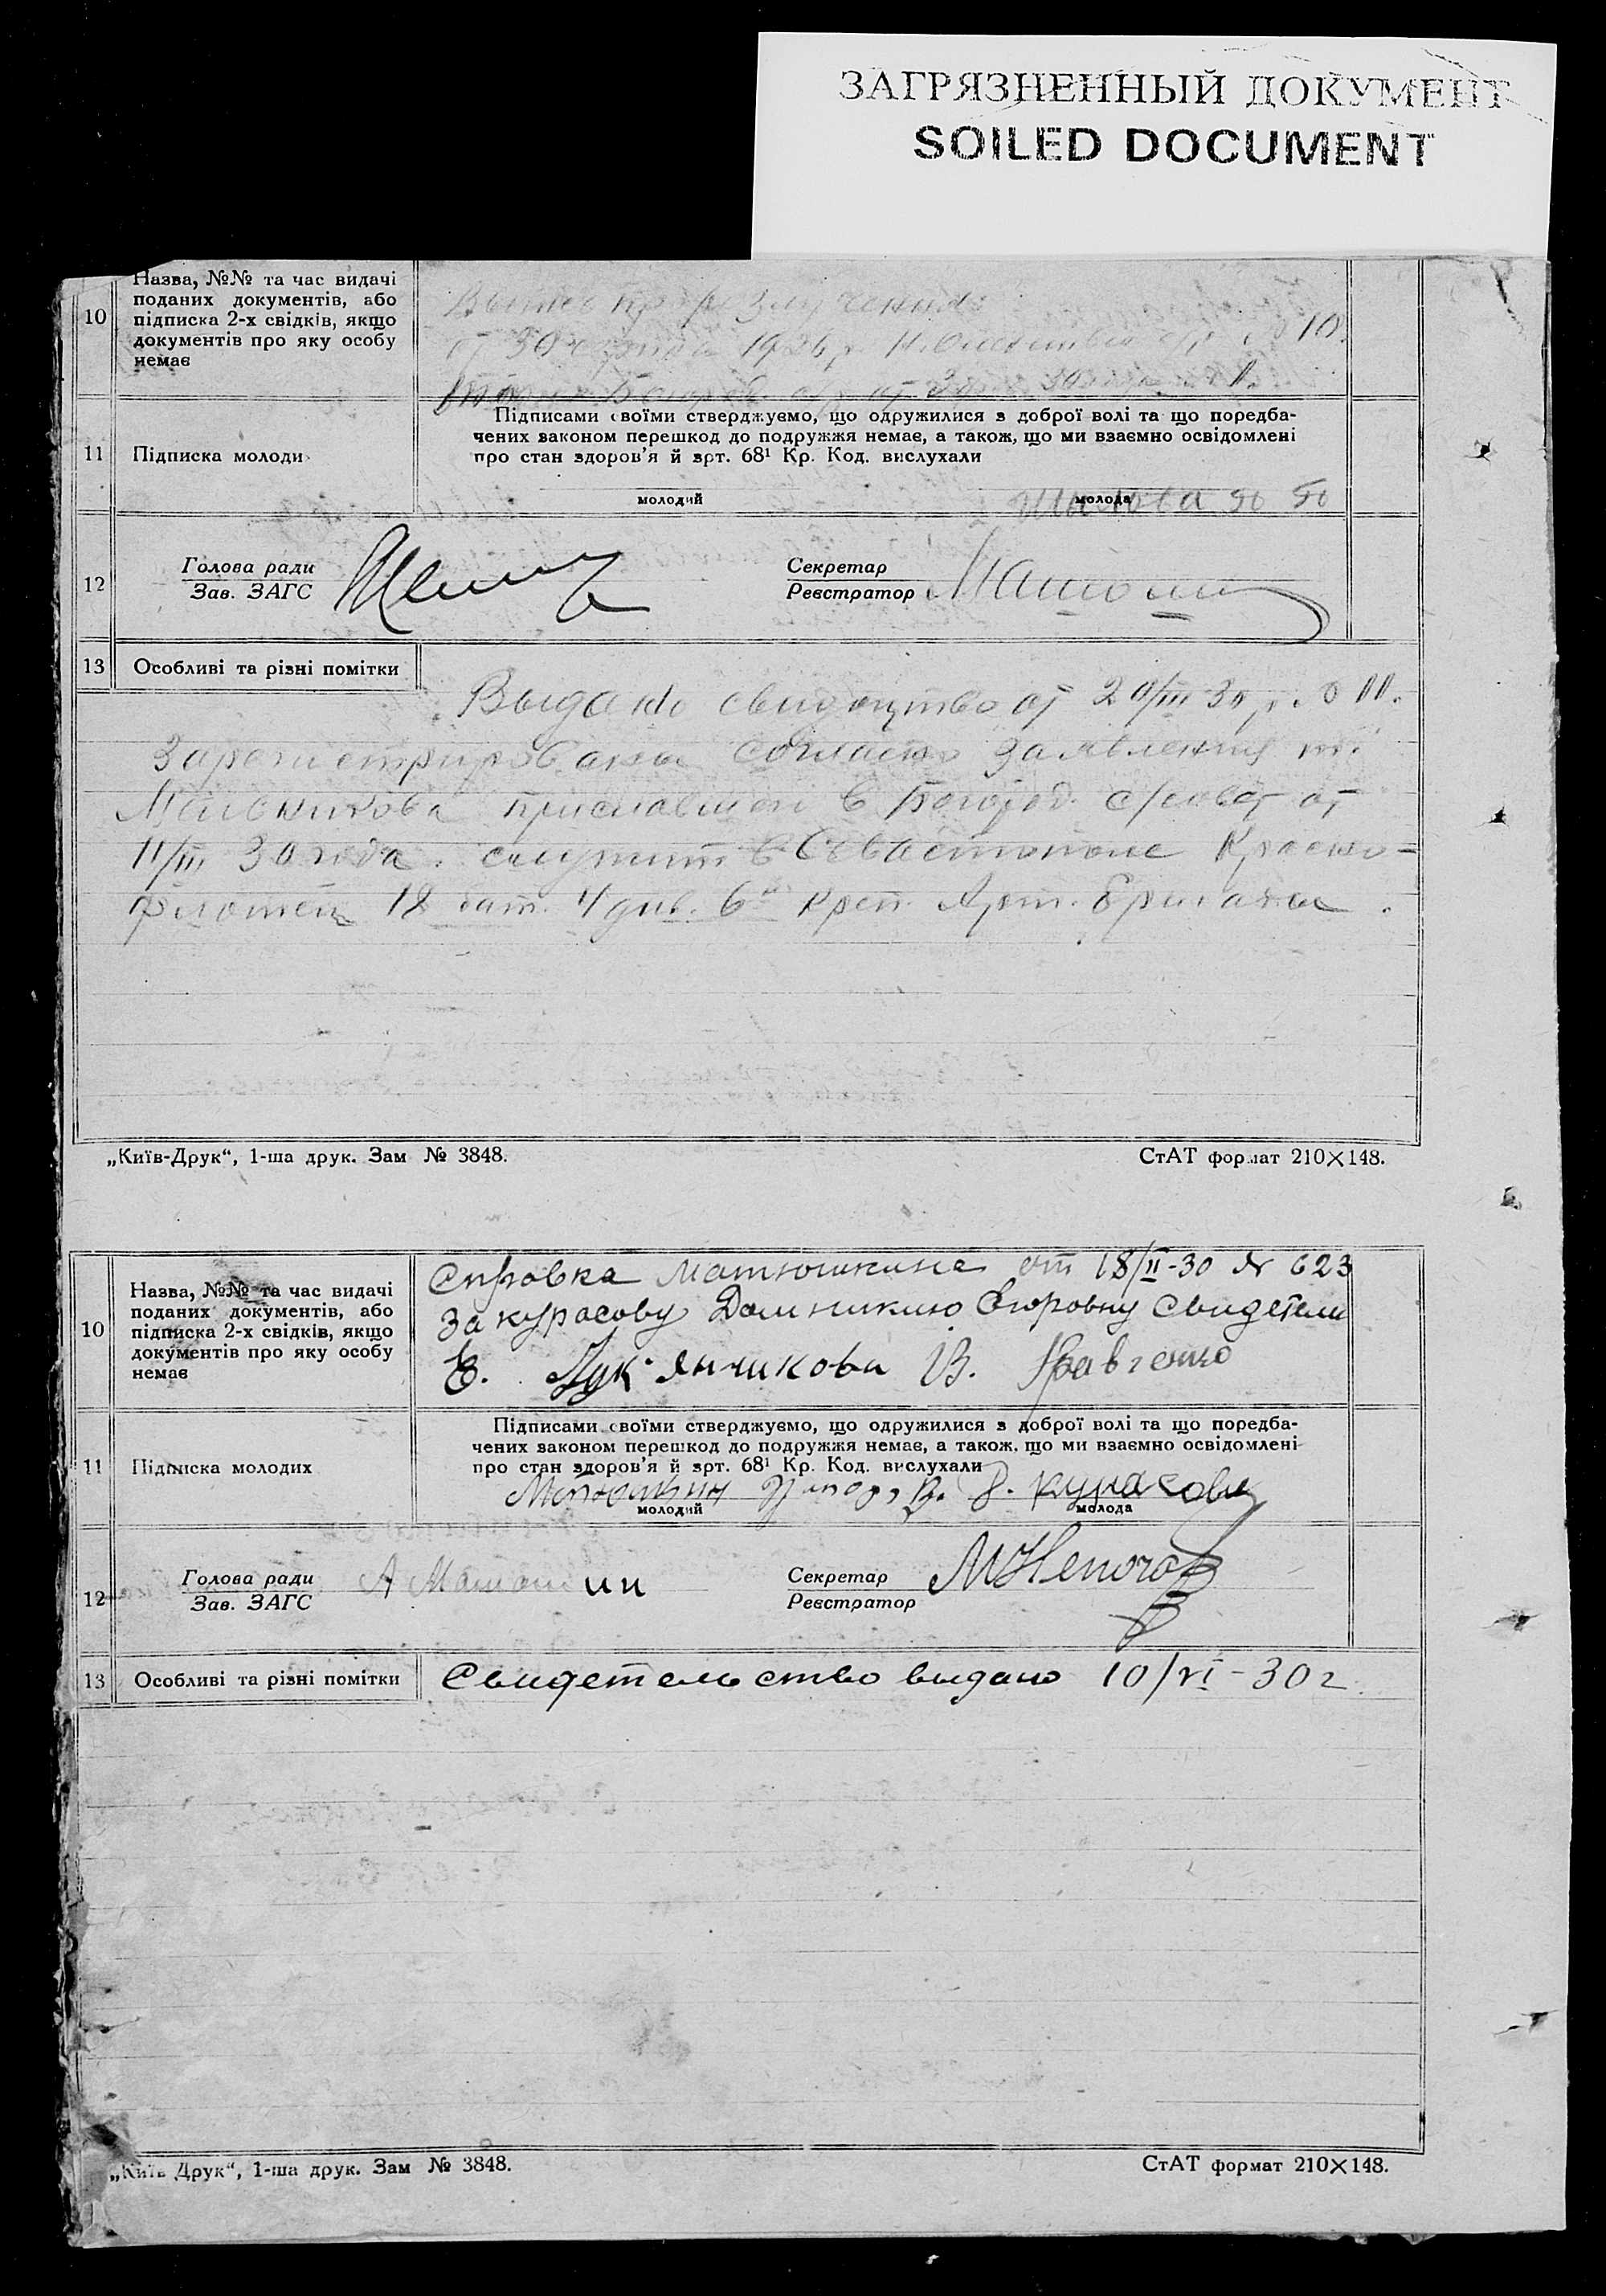 ЗАГРЯЗНЕННЫЙ ДОКУМЕНТ
SOILED DOCUMENT
10
Назва, №№ та час видачі
поданих документів, або
підписка 2-х свідків, якщо
документів про яку особу
немає
30 1926 10
11
Підписка молоди
Підписами своїми стверджуємо, що одружилися з доброї волі та що поредба-
чених законом перешкод до подружжя немає, а також, що ми взаємно освідомлені
про стан здоров'я й арт. 68¹ Кр. Код. вислухали
молодий
молода
12
Голова ради
Зав. ЗАГС
Секретар
Реєстратор
13
Особливі та різні помітки
Выдано свидоцтво от 20/III 30 р. 11.
Зарегистрирована согласно заявления
Мильникова приславшей в Богород. с/совет от
11/III 30 года. служит в Севастополе Красно-
флотец 12 бат. 4 див. 6й Креп. Арт.
„Київ-Друк“, 1-ша друк. Зам № 3848.
СтАТ формат 210×148.
10
Назва, №№ та час видачі
поданих документів, або
підписка 2-х свідків, якщо
документів про яку особу
немає
Справка Матюшкина от 18/II-30 № 623
За курасову Домникию Егоровну Свидетели
Е. Лук'янчикова В. Кравченко
11
Підписка молодих
Підписами своїми стверджуємо, що одружилися з доброї волі та що поредба-
чених законом перешкод до подружжя немає, а також, що ми взаємно освідомлені
про стан здоров'я й арт. 68¹ Кр. Код. вислухали
Матюшкин курасова
молодий
молода
12
Голова ради
Зав. ЗАГС
Секретар
Реєстратор
13
Особливі та різні помітки
Свидетельство выдано 10/VI-30 г.
„Київ Друк“, 1-ша друк. Зам № 3848.
СтАТ формат 210×148.